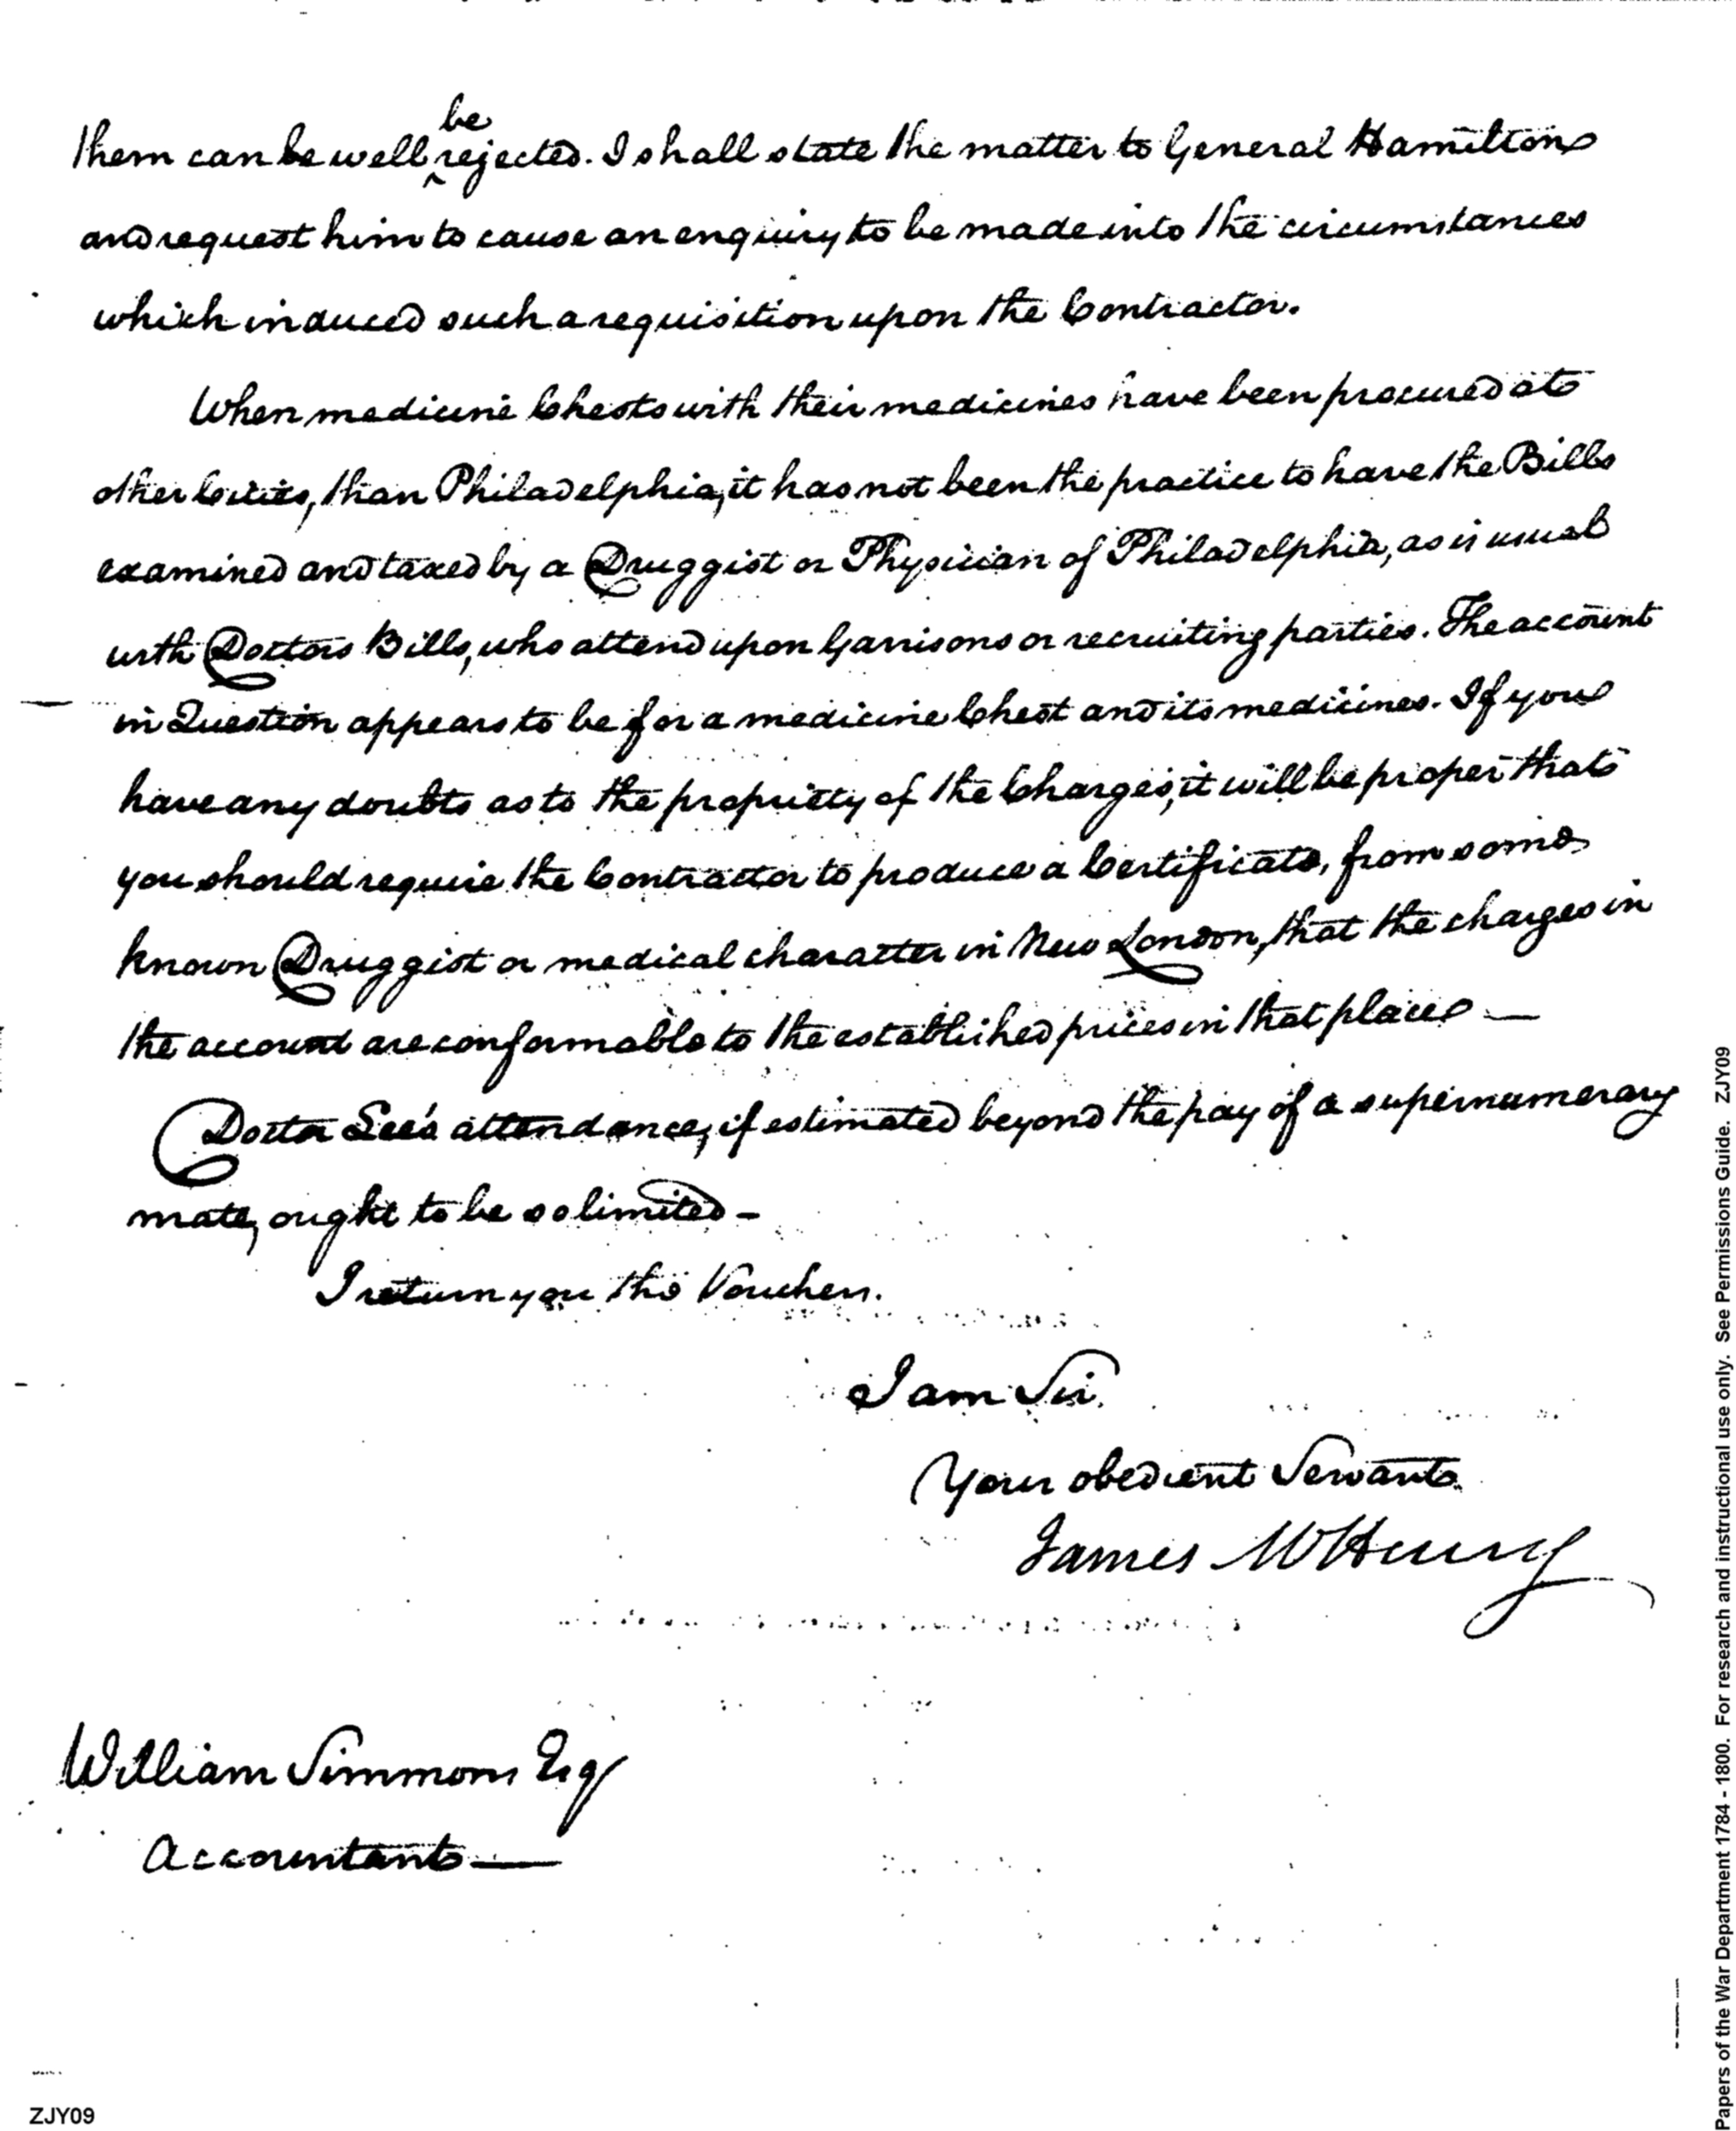 be
them can be well ^ rejected. I shall state the matter to General Hamilton
and request him to cause an enquiry to be made into the circumstances
which induced such a requisition upon the Contractor.
When medicine Chests with their medicines have been procured at
other Cities, than Philadelphia, it has not been the practice to have the Bills
examined and taxed by a Druggist or Physician of Philadelphia, as is usual
with Doctors Bills, who attend upon Garrisons or recruiting parties. The account
in Question appears to be for a medicine Chest and its medicines. If you
have any doubts as to the propriety of the Charges, it will be proper that
you should require the Contractor to produce a Certificate, from some
known Druggist or medical character in New London, that the charges in
the account are conformable to the established prices in that place —
Doctor Lee's attendance, if estimated beyond the pay of a supernumerary
mate, ought to be so limited –
I return you the Vouchers.
I am Sir.
Your obedient Servant
James McHenry
William Simmons Esq
Accountant —
ZJY09
Papers of the War Department 1784 - 1800. For research and instructional use only. See Permissions Guide. ZJY09